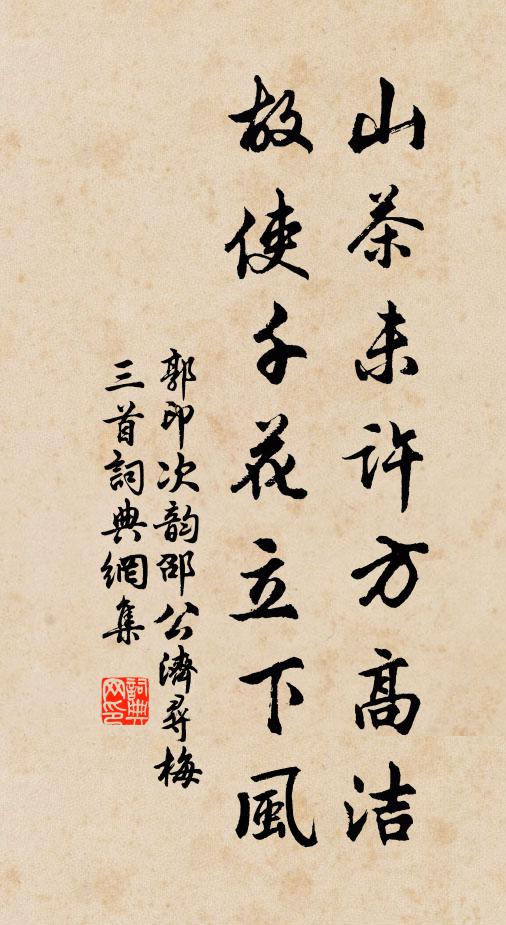 山茶未许方高洁
故使千花立下風
郭印次韵邵公濟尋梅
三首詞典網集
詞典网印